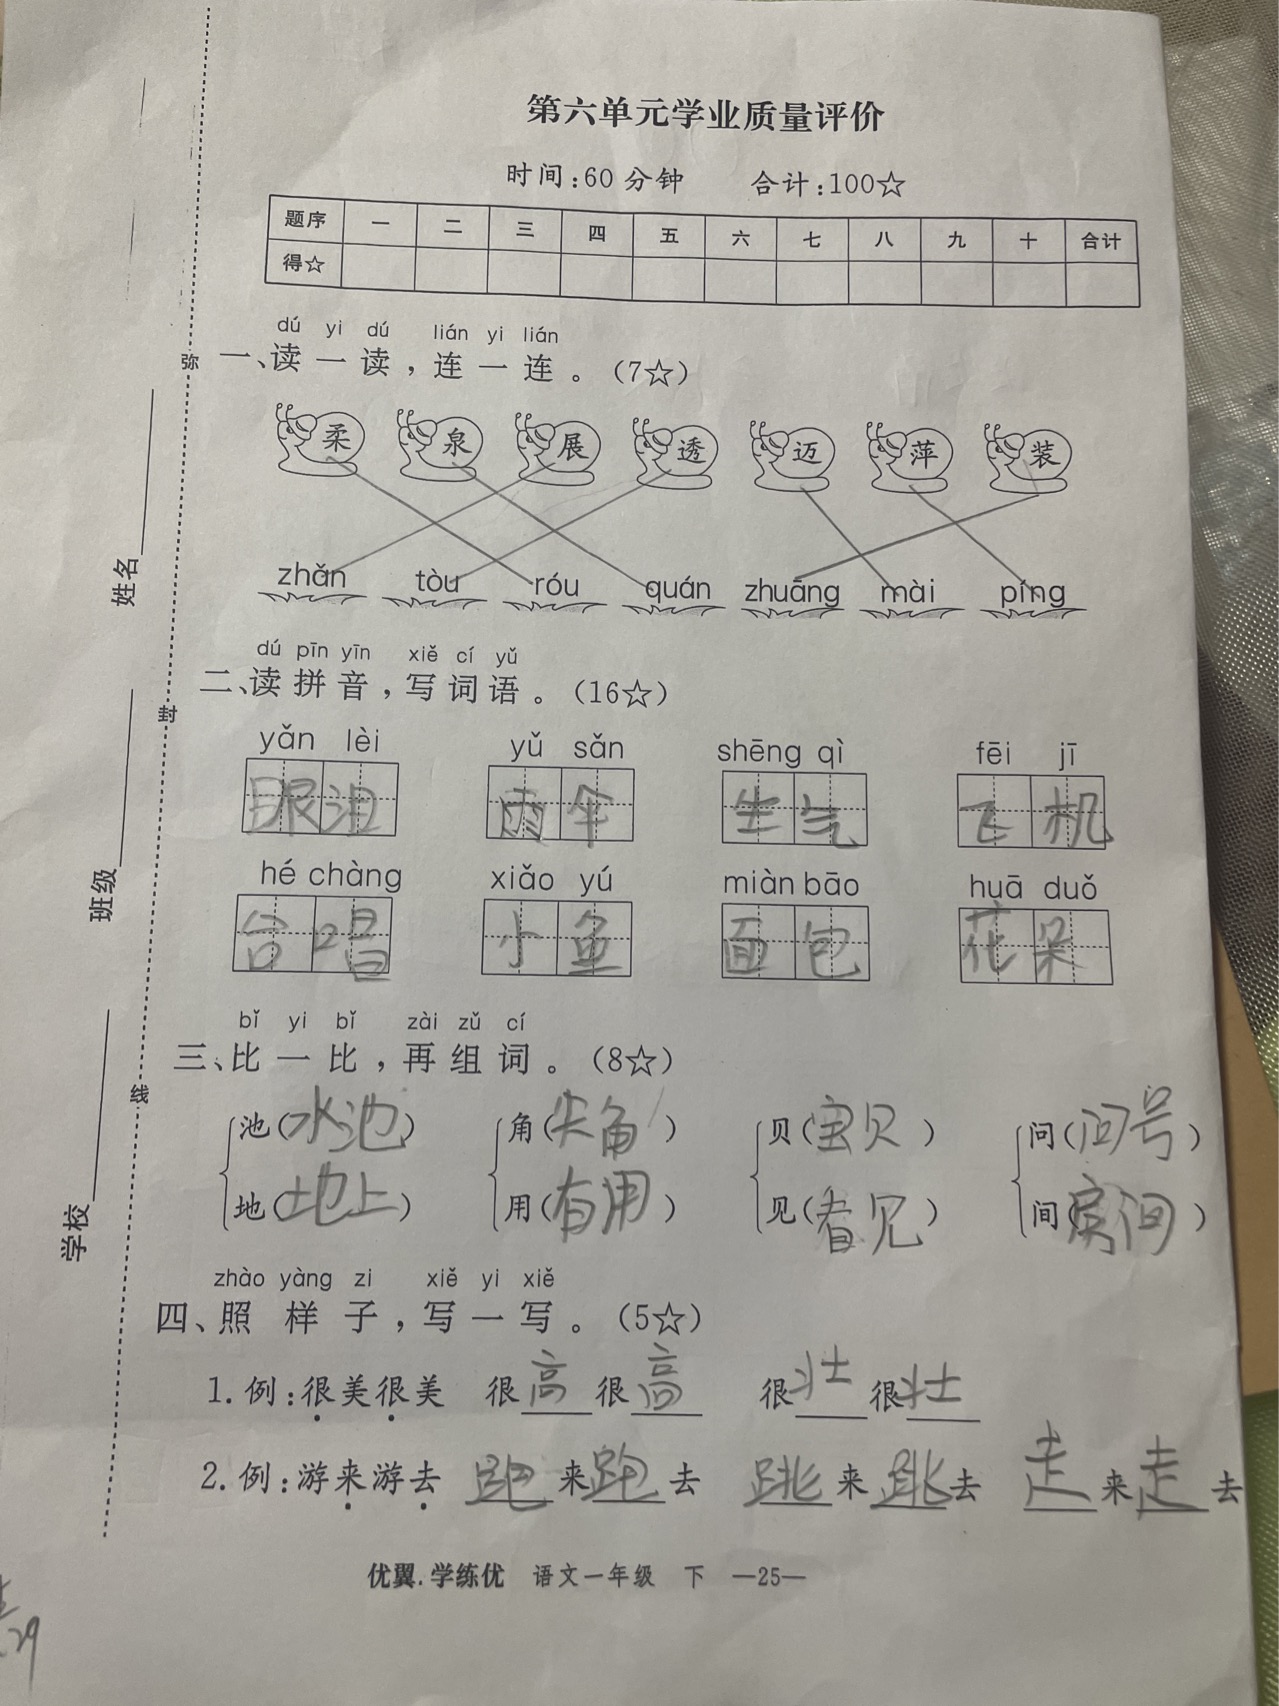 第六单元学业质量评价
时间:60 分钟 合计:100☆
题序 一 二 三 四 五 六 七 八 九 十 合计
得☆
dú yi dú lián yi lián
一、读一读,连一连。(7☆)
柔 泉 展 透 迈 萍 装
zhǎn tòu róu quán zhuāng mài píng
dú pīn yīn xiě cí yǔ
二、读拼音,写词语。(16☆)
yǎn lèi yǔ sǎn shēng qì fēi jī
眼泪 雨伞 生气 飞机
hé chàng xiǎo yú miàn bāo huā duǒ
合唱 小鱼 面包 花朵
bǐ yi bǐ zài zǔ cí
三、比一比,再组词。(8☆)
池(水池) 角(尖角) 贝(宝贝) 问(问号)
地(地上) 用(有用) 见(看见) 间(房间)
zhào yàng zi xiě yi xiě
四、照样子,写一写。(5☆)
1. 例:很美很美 很高很高 很壮很壮
2. 例:游来游去 跑来跑去 跳来跳去 走来走去
优翼.学练优 语文一年级 下 —25—
弥
封
线
姓名
班级
学校